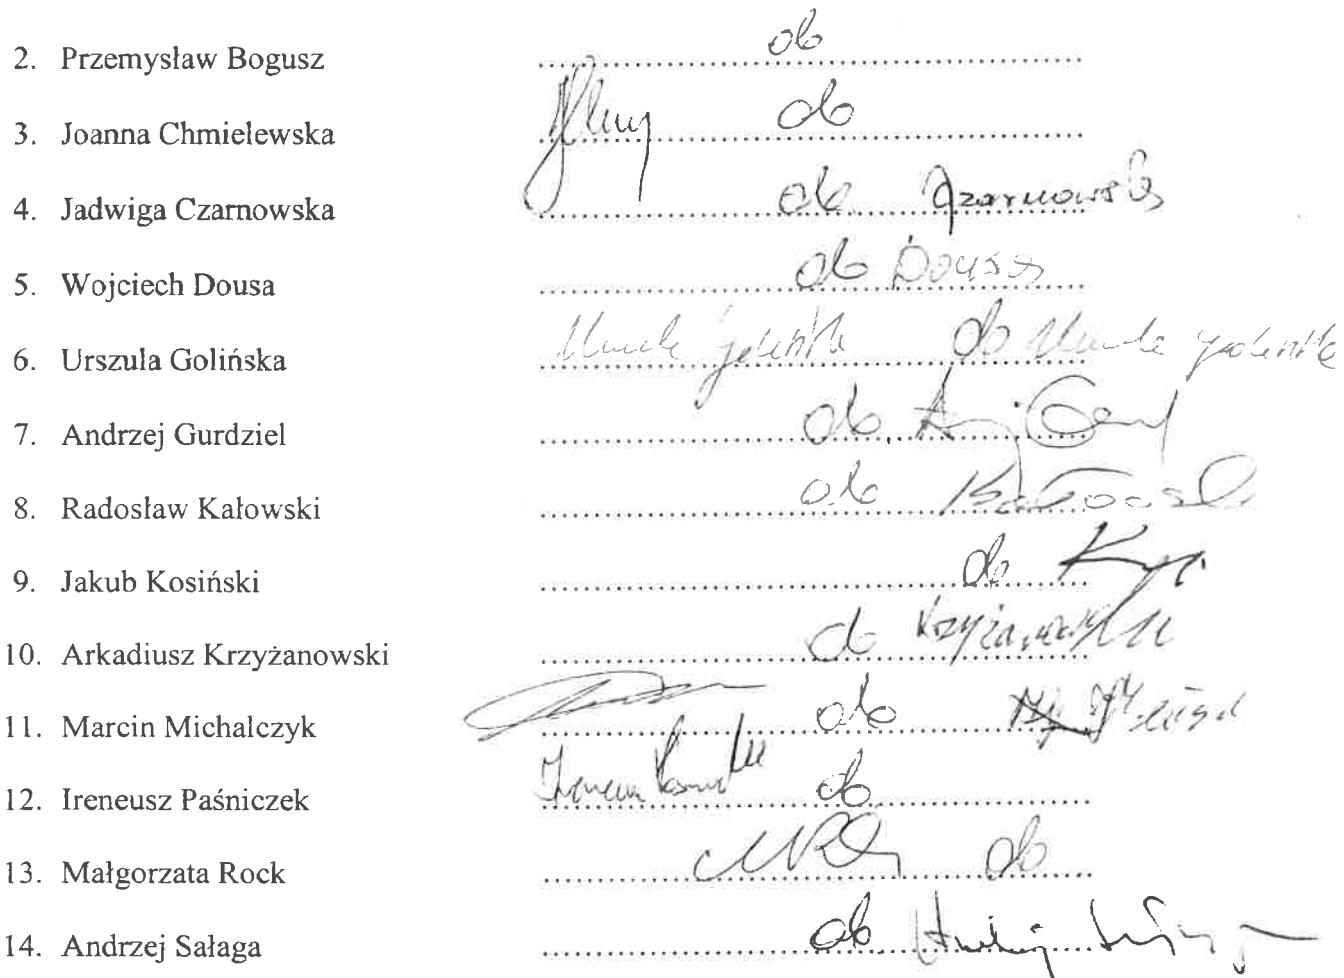 2. Przemysław Bogusz ob
3. Joanna Chmielewska ob
4. Jadwiga Czarnowska ob Czarnowska
5. Wojciech Dousa ob Dousa
6. Urszula Golińska ob
7. Andrzej Gurdziel ob
8. Radosław Kałowski ob Kałowski
9. Jakub Kosiński ob
10. Arkadiusz Krzyżanowski ob Krzyżanowski
11. Marcin Michalczyk ob
12. Ireneusz Paśniczek ob
13. Małgorzata Rock ob
14. Andrzej Sałaga ob